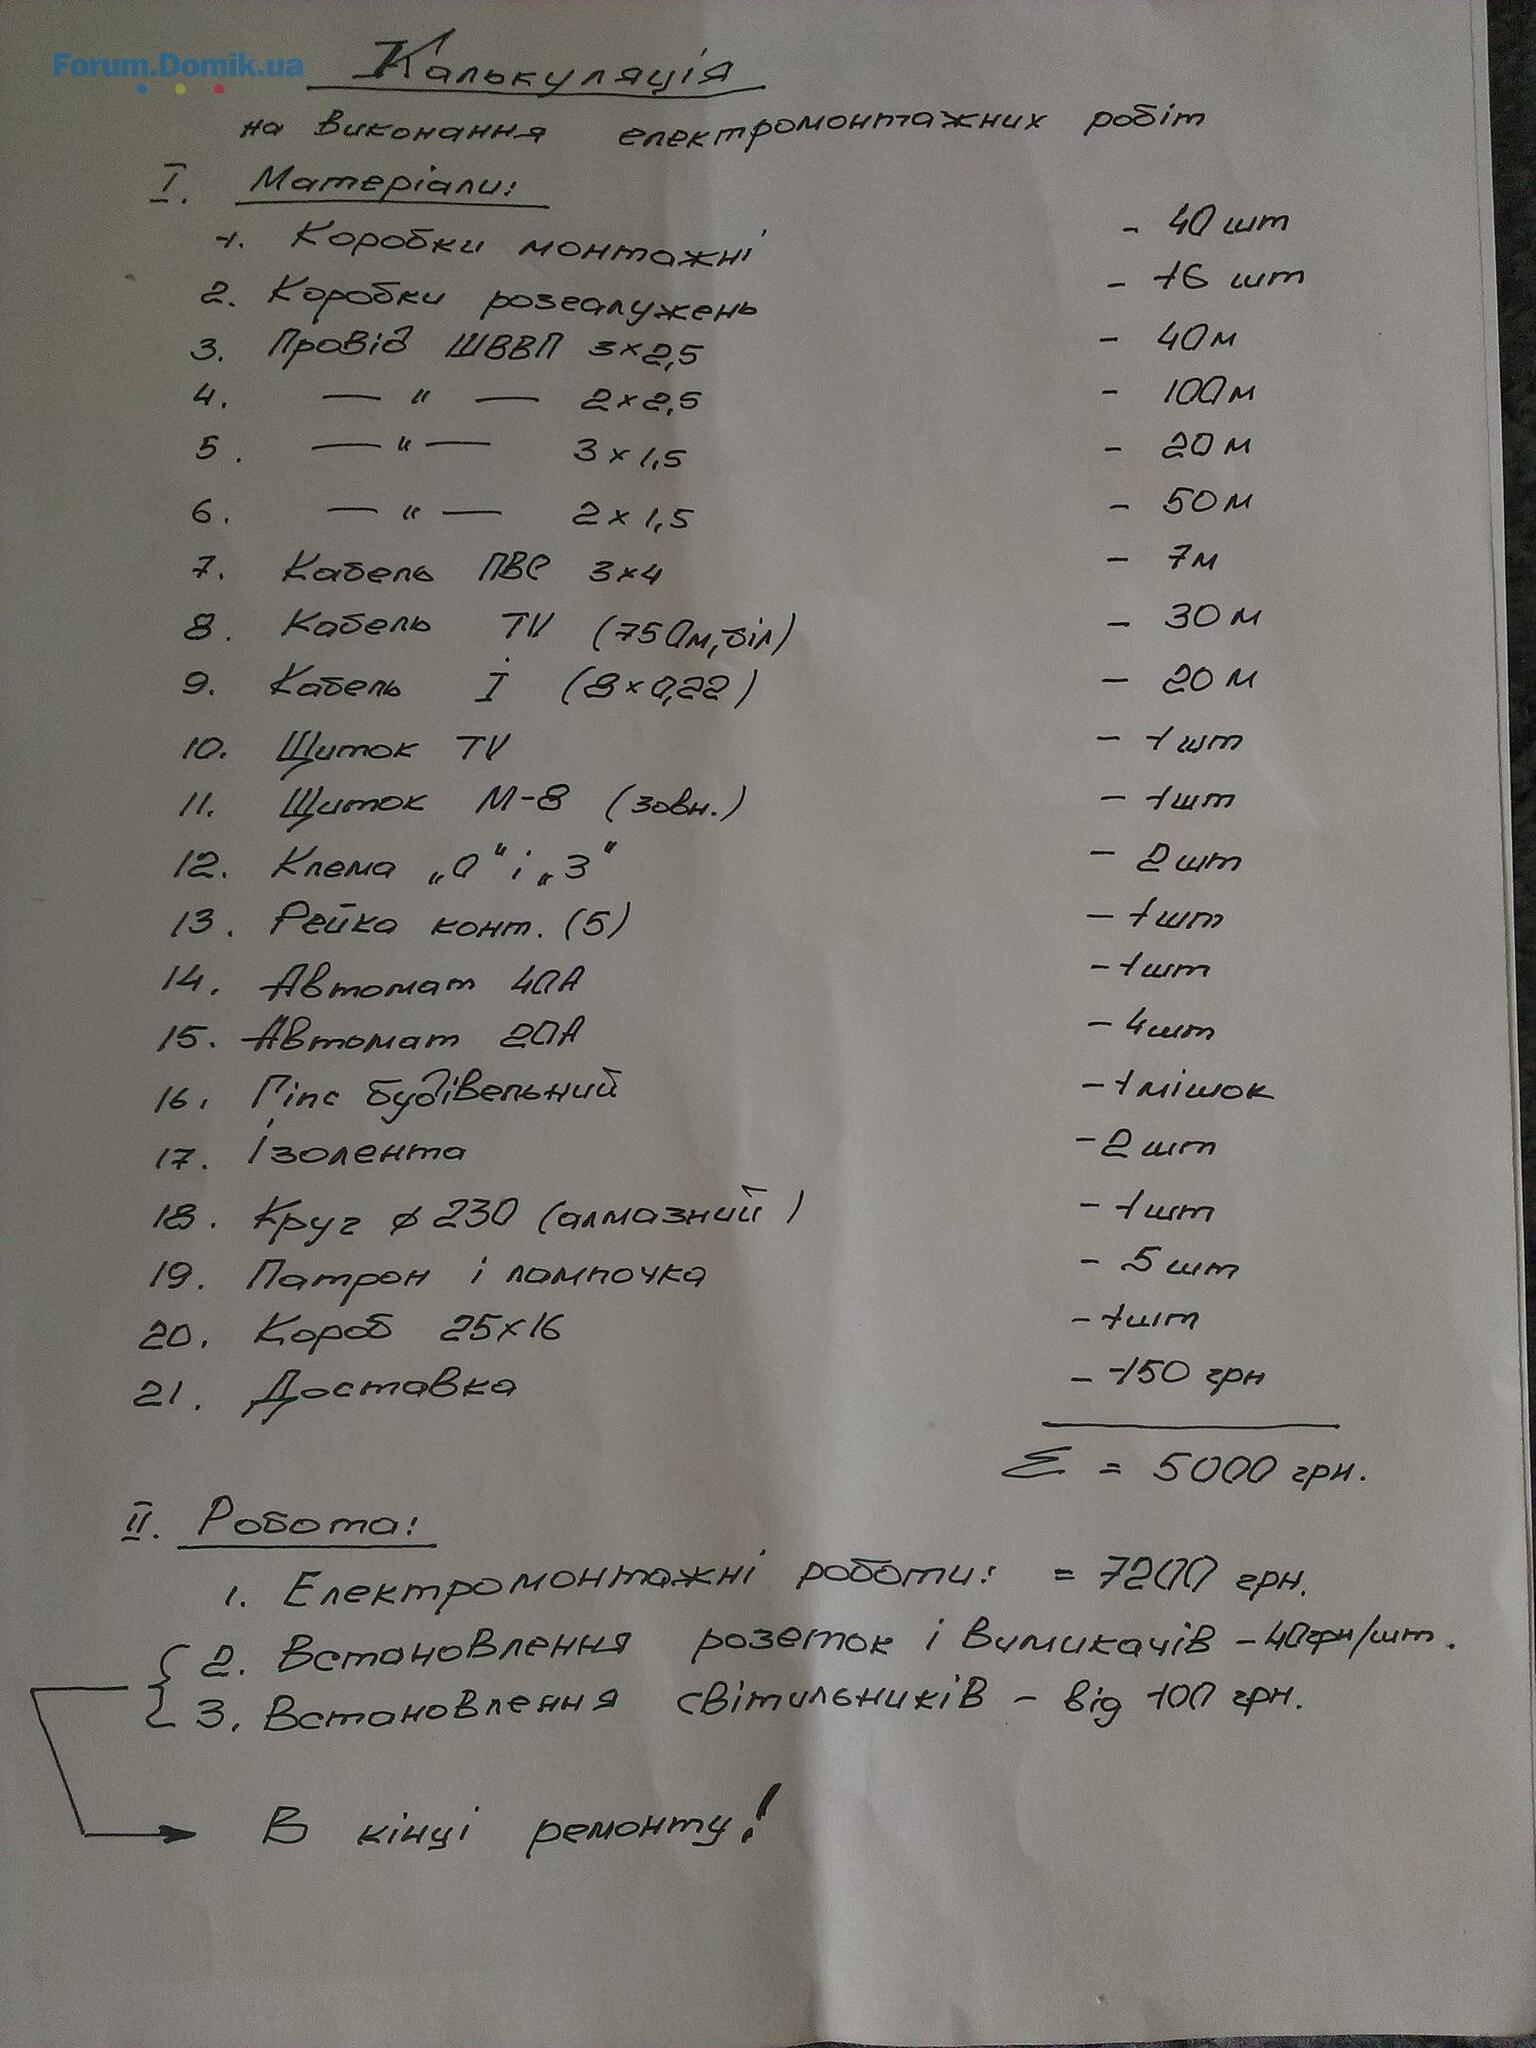 Forum.Domik.ua
Калькуляція
на виконання електромонтажних робіт
I. Матеріали:
1. Коробки монтажні - 40 шт
2. Коробки розгалужень - 16 шт
3. Провід ШВВП 3×2,5 - 40м
4. — " — 2×2,5 - 100м
5. — " — 3×1,5 - 20м
6. — " — 2×1,5 - 50м
7. Кабель ПВС 3×4 - 7м
8. Кабель TV (75Ом, біл) - 30м
9. Кабель І (8×0,22) - 20м
10. Щиток TV - 1шт
11. Щиток М-8 (зовн.) - 1шт
12. Клема „0" і „З" - 2шт
13. Рейка конт. (5) - 1шт
14. Автомат 40А - 1шт
15. Автомат 20А - 4шт
16. Гіпс будівельний - 1мішок
17. Ізолента - 2шт
18. Круг ϕ 230 (алмазний) - 1шт
19. Патрон і лампочка - 5шт
20. Короб 25×16 - 1шт
21. Доставка - 150 грн
Σ = 5000 грн.
II. Робота:
1. Електромонтажні роботи: = 7200 грн.
2. Встановлення розеток і вимикачів - 40грн/шт.
3. Встановлення світильників - від 100 грн.
В кінці ремонту!